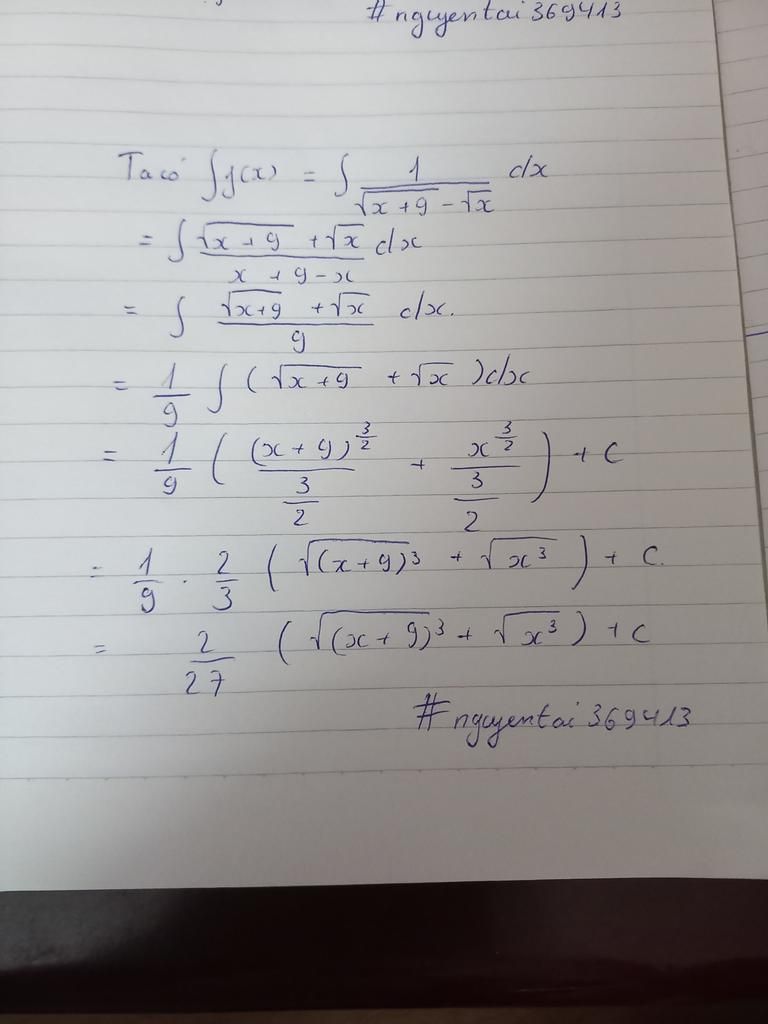 #nguyentai369413
Ta có ∫f(x) = ∫ 1/(√(x+9) - √x) dx
= ∫ (√(x+9) + √x)/(x+9-x) dx
= ∫ (√(x+9) + √x)/9 dx.
= 1/9 ∫ (√(x+9) + √x) dx
= 1/9 ( (x+9)^(3/2)/(3/2) + x^(3/2)/(3/2) ) + C
= 1/9 . 2/3 ( √((x+9)³) + √(x³) ) + C.
= 2/27 ( √((x+9)³) + √(x³) ) + C
#nguyentai369413